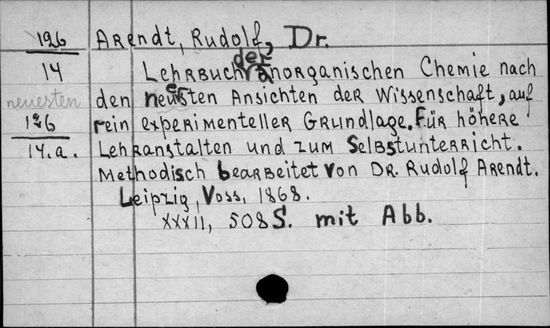 126 Arendt, Rudolf, Dr.
14 Lehrbuch der anorganischen Chemie nach
neuesten den neuesten Ansichten der Wissenschaft, auf
126 rein experimenteller Grundlage. Für höhere
14.a. Lehranstalten und zum Selbstunterricht.
Methodisch bearbeitet von Dr. Rudolf Arendt.
Leipzig, Voss, 1868.
XXXII, 508 S. mit Abb.